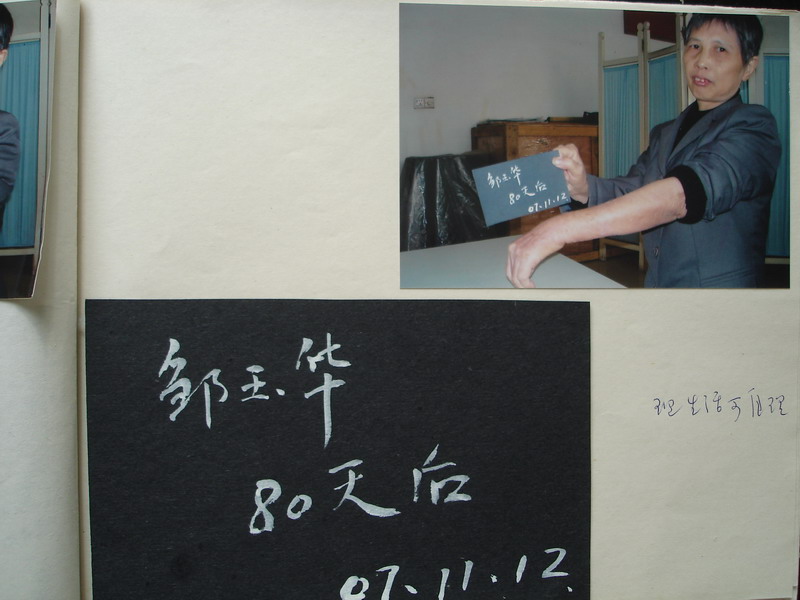 邹玉华
80天后
07.11.12
邹玉华
80天后
07.11.12.
现生活可自理